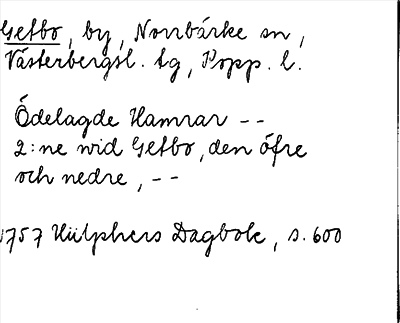 Getbo, by, Norrbärke sn,
Västerbergsl. tg, Kopp. l.
Ödelagde Hamrar --
2:ne wid Getbo, den öfre
och nedre, --
1757 Hülphers Dagbok, s. 600